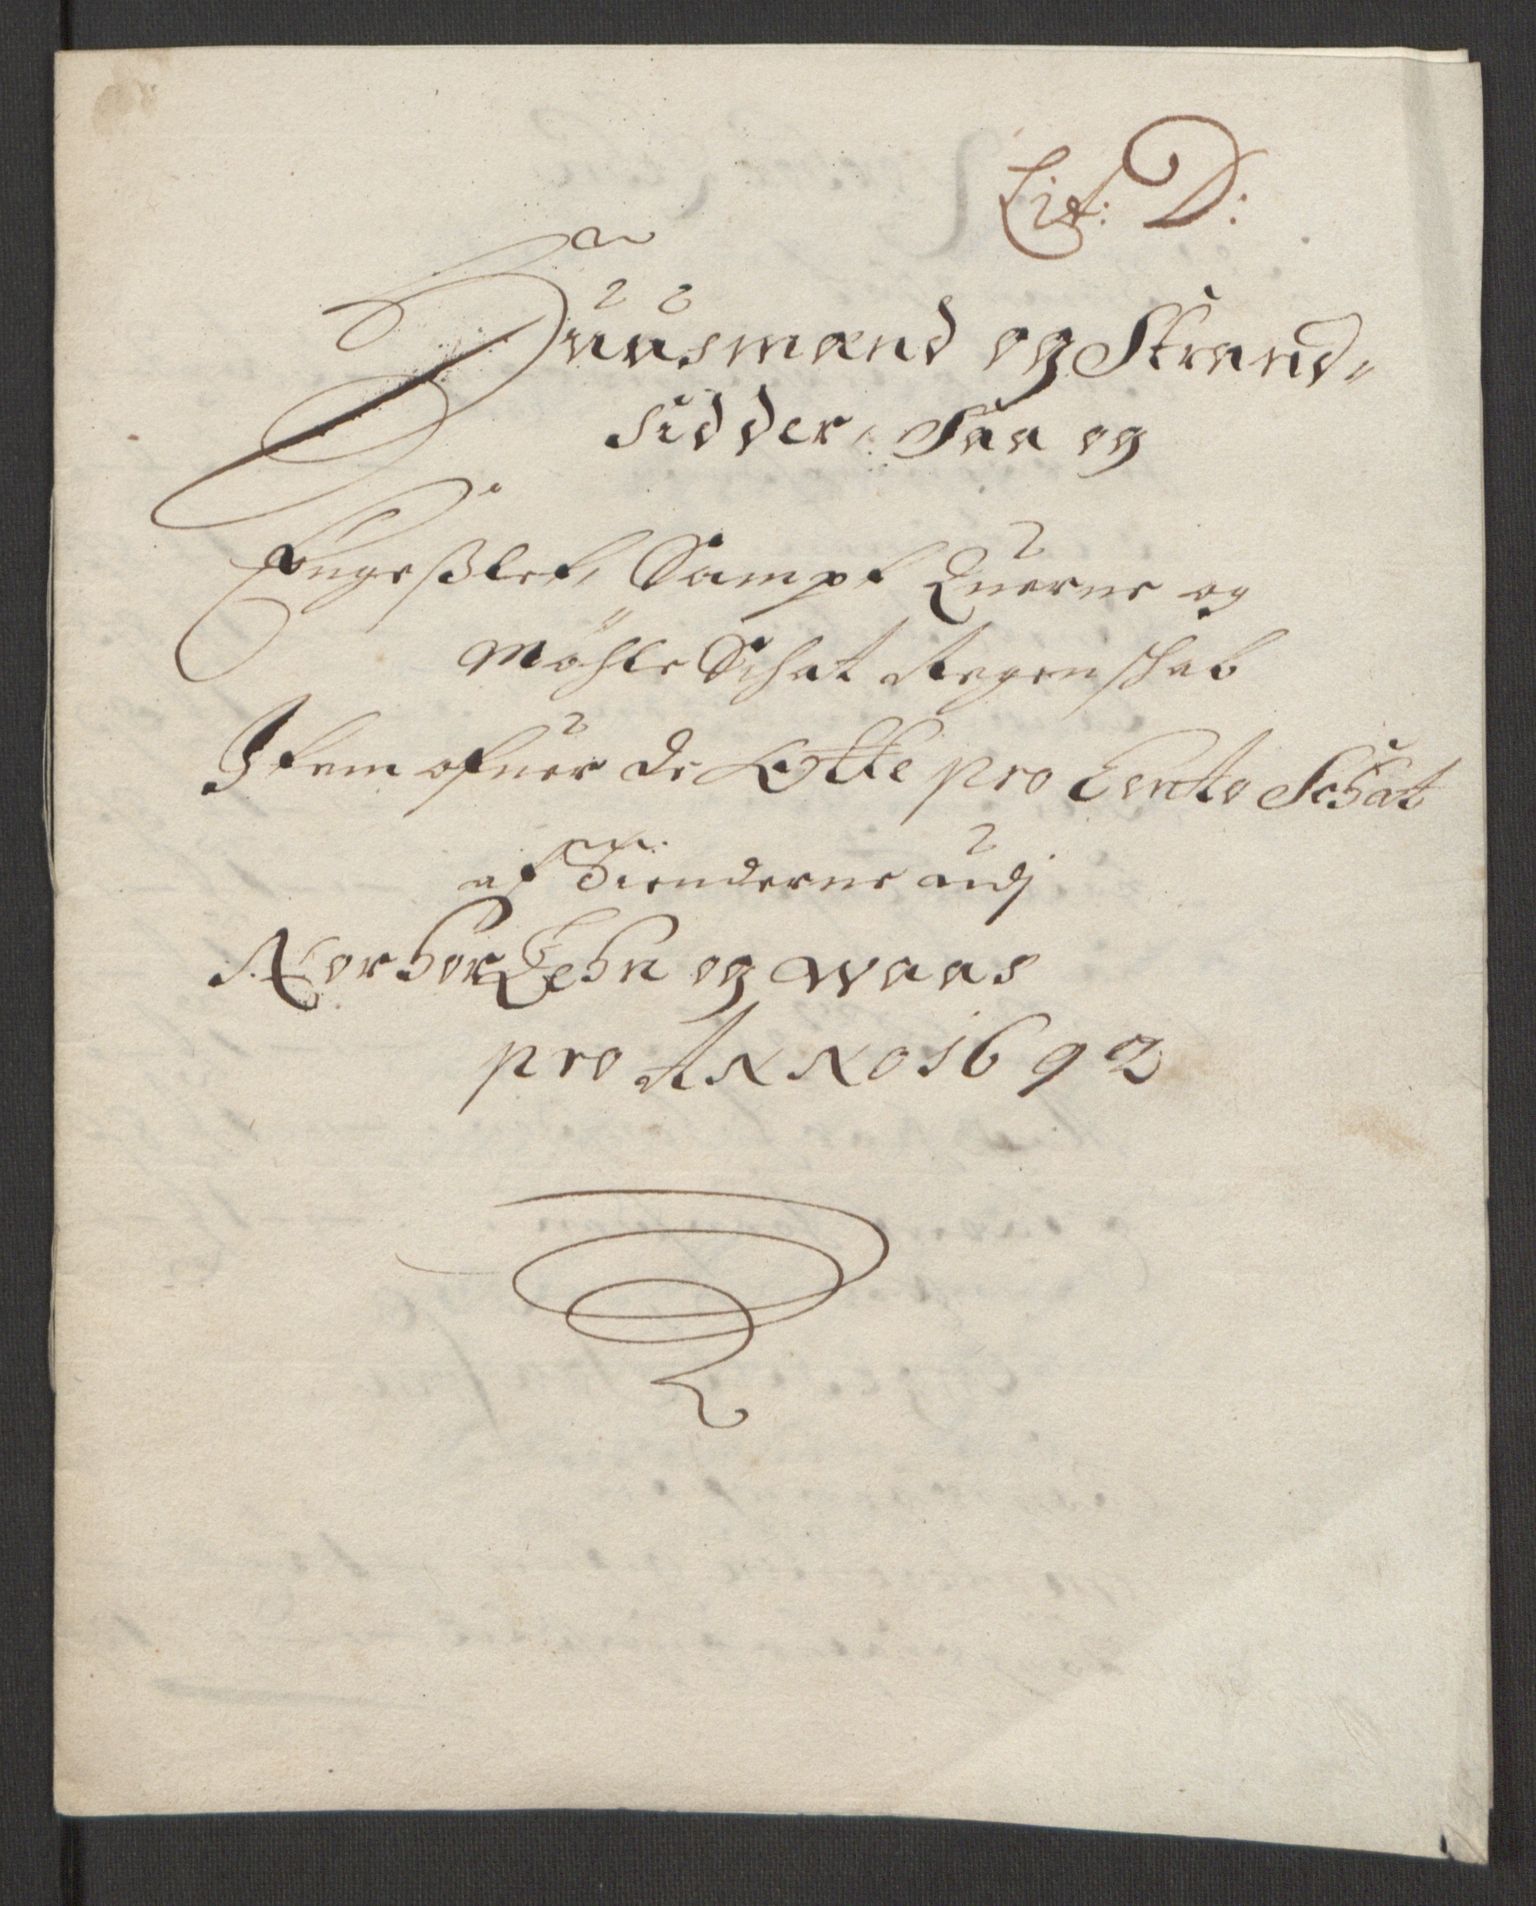 Lit: D:
Huusmænd og Strand-
sidder, Saa og
Engeslet, Sampt Querne og
Möhle Schat Regenschab
Item ofuer de Lotte pro Cento Schat
af Tienderne udj
Norhor Lehn og Waas
pro ANNO 1692